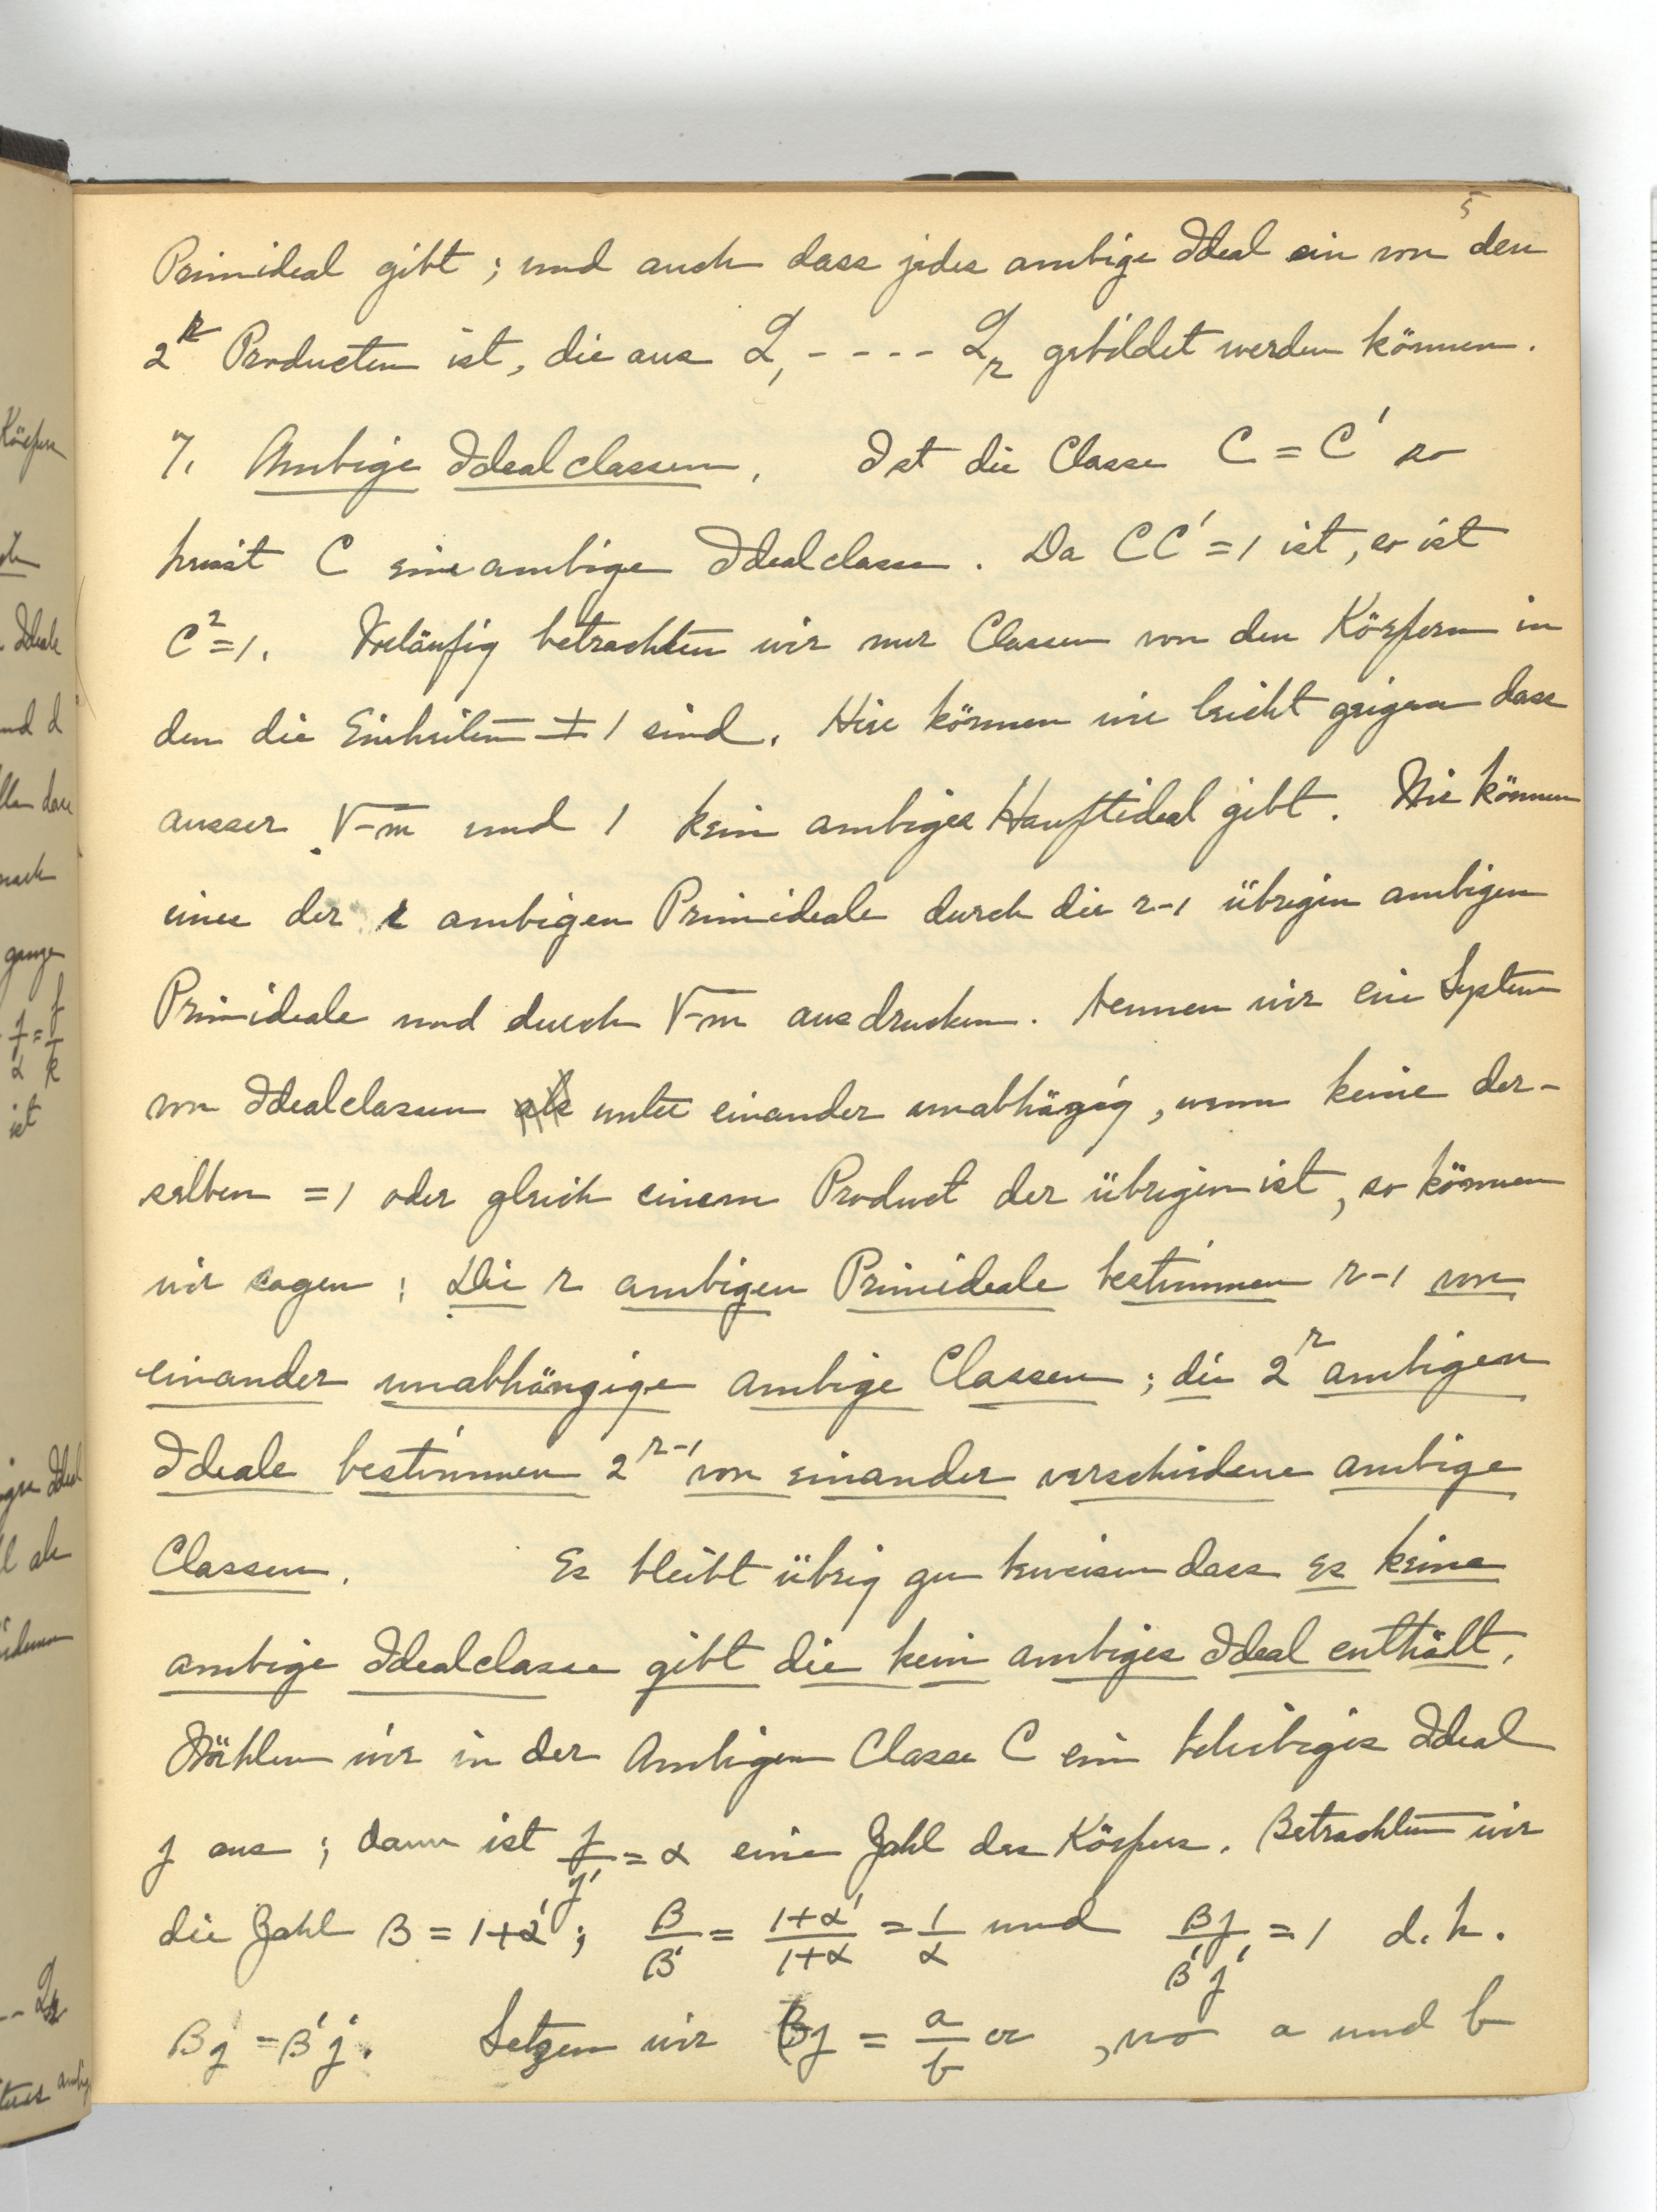 5
Primideal gibt; und auch dass jedes ambige Ideal ein von den
2^r Producten ist, die aus L_1 - - - - L_r gebildet werden können.
7. Ambige Idealclassen. Ist die Classe C = C' so
heisst C eine ambige Idealclasse. Da CC' = 1 ist, so ist
C^2 = 1. Vorläufig betrachten wir nur Classen von den Körpern in
den die Einheiten ± 1 sind. Hier können wir leicht zeigen dass
ausser √-m und 1 kein ambiges Hauptideal gibt. Wir können
eines der r ambigen Primideale durch die r-1 übrigen ambigen
Primideale und durch √-m ausdrucken. Nennen wir ein System
von Idealclassen unter einander unabhägig, wenn keine der-
selben = 1 oder gleich einem Product der übrigen ist, so können
wir sagen: Die r ambigen Primideale bestimmen r-1 von
einander unabhängige ambige Classen; die 2^r ambigen
Ideale bestimmen 2^{r-1} von einander verschiedene ambige
Classen. Es bleibt übrig zu beweisen dass es keine
ambige Idealclasse gibt die kein ambiges Ideal enthält.
Wählen wir in der Ambigen Classe C ein beliebiges Ideal
j aus; dann ist j/j' = α eine Zahl des Körpers. Betrachten wir
die Zahl β = 1+α'; β/β' = (1+α')/(1+α) = 1/α und βj/β'j' = 1 d.h.
βj = β'j'. Setzen wir βj = a/b α, wo a und b